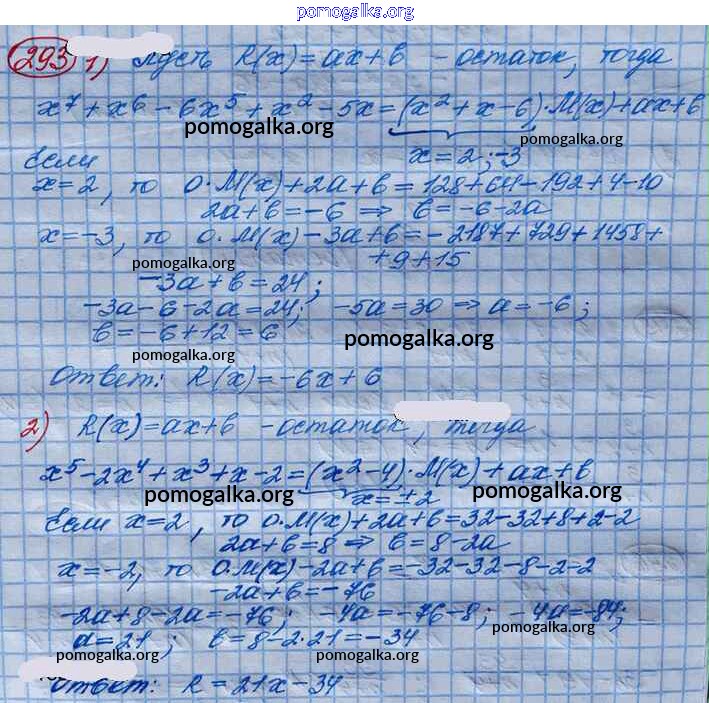 pomogalka.org
293 1) Пусть R(x)=ax+b - остаток, тогда
x⁷+x⁶-6x⁵+x²-5x=(x²+x-6)·M(x)+ax+b
pomogalka.org pomogalka.org
Если x=2;-3
x=2, то 0·M(x)+2a+b=128+64-192+4-10
2a+b=-6 ⇒ b=-6-2a
x=-3, то 0·M(x)-3a+b=-2187+729+1458+
+9+15
pomogalka.org
-3a+b=24;
-3a-6-2a=24; -5a=30 ⇒ a=-6;
b=-6+12=6
pomogalka.org
pomogalka.org
Ответ: R(x)=-6x+6
2) R(x)=ax+b - остаток, тогда
x⁵-2x⁴+x³+x-2=(x²-4)·M(x)+ax+b
pomogalka.org x=±2 pomogalka.org
Если x=2, то 0·M(x)+2a+b=32-32+8+2-2
2a+b=8 ⇒ b=8-2a
x=-2, то 0·M(x)-2a+b=-32-32-8-2-2
-2a+b=-76
-2a+8-2a=-76; -4a=-76-8; -4a=-84;
pomogalka.org
a=21; b=8-2·21=-34
pomogalka.org pomogalka.org
Ответ: R=21x-34